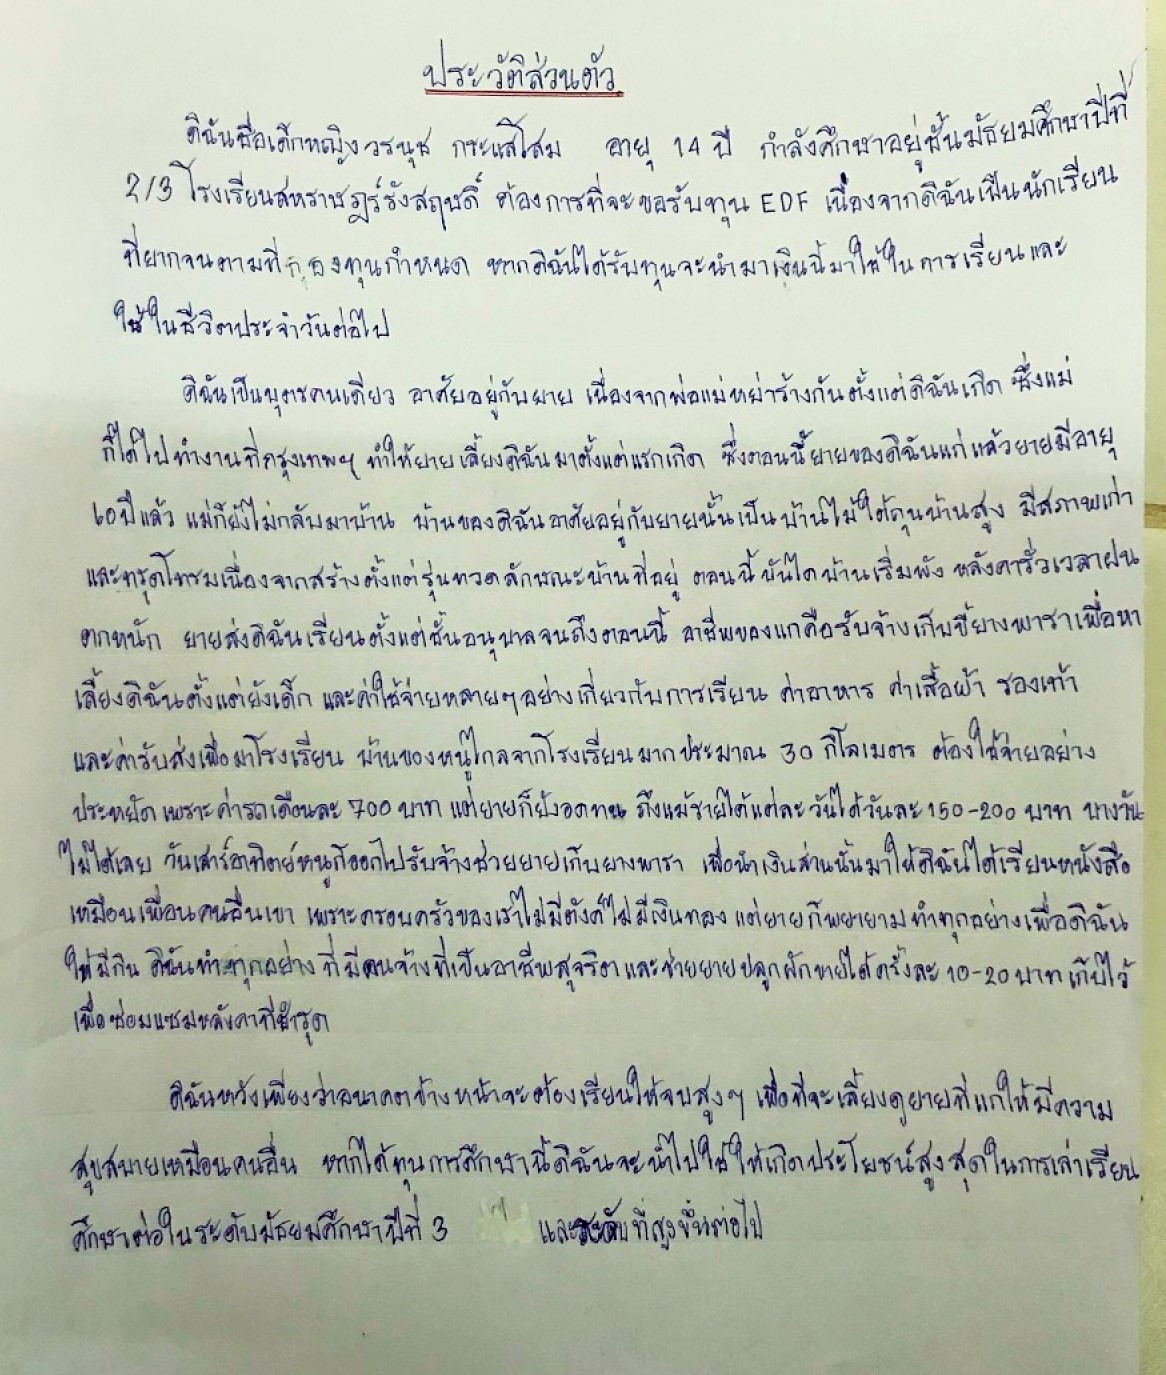 ประวัติส่วนตัว
ดิฉันชื่อเด็กหญิงวรนุช กระแสโสม อายุ 14 ปี กำลังศึกษาอยู่ชั้นมัธยมศึกษาปีที่
2/3 โรงเรียนสหราษฎร์รังสฤษดิ์ ต้องการที่จะขอรับทุน EDF เนื่องจากดิฉันเป็นนักเรียน
ที่ยากจนตามที่กองทุนกำหนด หากดิฉันได้รับทุนจะนำมาเงินนี้มาใช้ในการเรียนและ
ใช้ในชีวิตประจำวันต่อไป
ดิฉันเป็นบุตรคนเดียว อาศัยอยู่กับยาย เนื่องจากพ่อแม่หย่าร้างกันตั้งแต่ดิฉันเกิด ซึ่งแม่
ก็ได้ไปทำงานที่กรุงเทพฯ ทำให้ยายเลี้ยงดิฉันมาตั้งแต่แรกเกิด ซึ่งตอนนี้ยายของดิฉันแก่แล้วยายมีอายุ
60ปีแล้ว แม่ก็ยังไม่กลับมาบ้าน บ้านของดิฉันอาศัยอยู่กับยายนั้นเป็นบ้านไม้ใต้ถุนบ้านสูง มีสภาพเก่า
และทรุดโทรมเนื่องจากสร้างตั้งแต่รุ่นทวดลักษณะบ้านที่อยู่ ตอนนี้บันไดบ้านเริ่มพัง หลังคารั่วเวลาฝน
ตกหนัก ยายส่งดิฉันเรียนตั้งแต่ชั้นอนุบาลจนถึงตอนนี้ อาชีพของแกคือรับจ้างเก็บขี้ยางพาราเพื่อหา
เลี้ยงดิฉันตั้งแต่ยังเด็ก และค่าใช้จ่ายหลายๆอย่างเกี่ยวกับการเรียน ค่าอาหาร ค่าเสื้อผ้า รองเท้า
และค่ารับส่งเพื่อมาโรงเรียน บ้านของหนูไกลจากโรงเรียนมากประมาณ 30 กิโลเมตร ต้องใช้จ่ายอย่าง
ประหยัดเพราะค่ารถเดือนละ 700 บาท แต่ยายก็ยังอดทน ถึงแม้รายได้แต่ละวันได้วันละ 150-200 บาท บางวัน
ไม่ได้เลย วันเสาร์อาทิตย์หนูก็ออกไปรับจ้างช่วยยายเก็บยางพารา เพื่อนำเงินส่วนนั้นมาให้ดิฉันได้เรียนหนังสือ
เหมือนเพื่อนคนอื่นเขา เพราะครอบครัวของเราไม่มีตังค์ไม่มีเงินทอง แต่ยายก็พยายามทำทุกอย่างเพื่อดิฉัน
ให้มีกิน ดิฉันทำทุกอย่างที่มีคนจ้างที่เป็นอาชีพสุจริตและช่วยยายปลูกผักขายได้ครั้งละ 10-20 บาท เก็บไว้
เพื่อซ่อมแซมหลังคาที่ชำรุด
ดิฉันหวังเพียงว่าอนาคตข้างหน้าจะต้องเรียนให้จบสูงๆ เพื่อที่จะเลี้ยงดูยายที่แก่ให้มีความ
สุขสบายเหมือนคนอื่น หากได้ทุนการศึกษานี้ดิฉันจะนำไปใช้ให้เกิดประโยชน์สูงสุดในการเล่าเรียน
ศึกษาต่อในระดับมัธยมศึกษาปีที่ 3 และระดับที่สูงขึ้นต่อไป